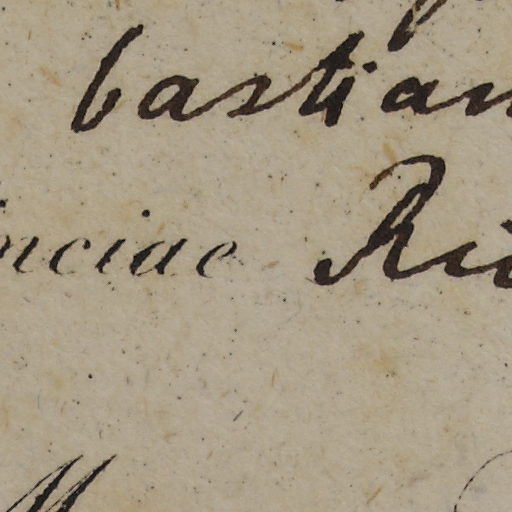 bastian
nciae Rio
M